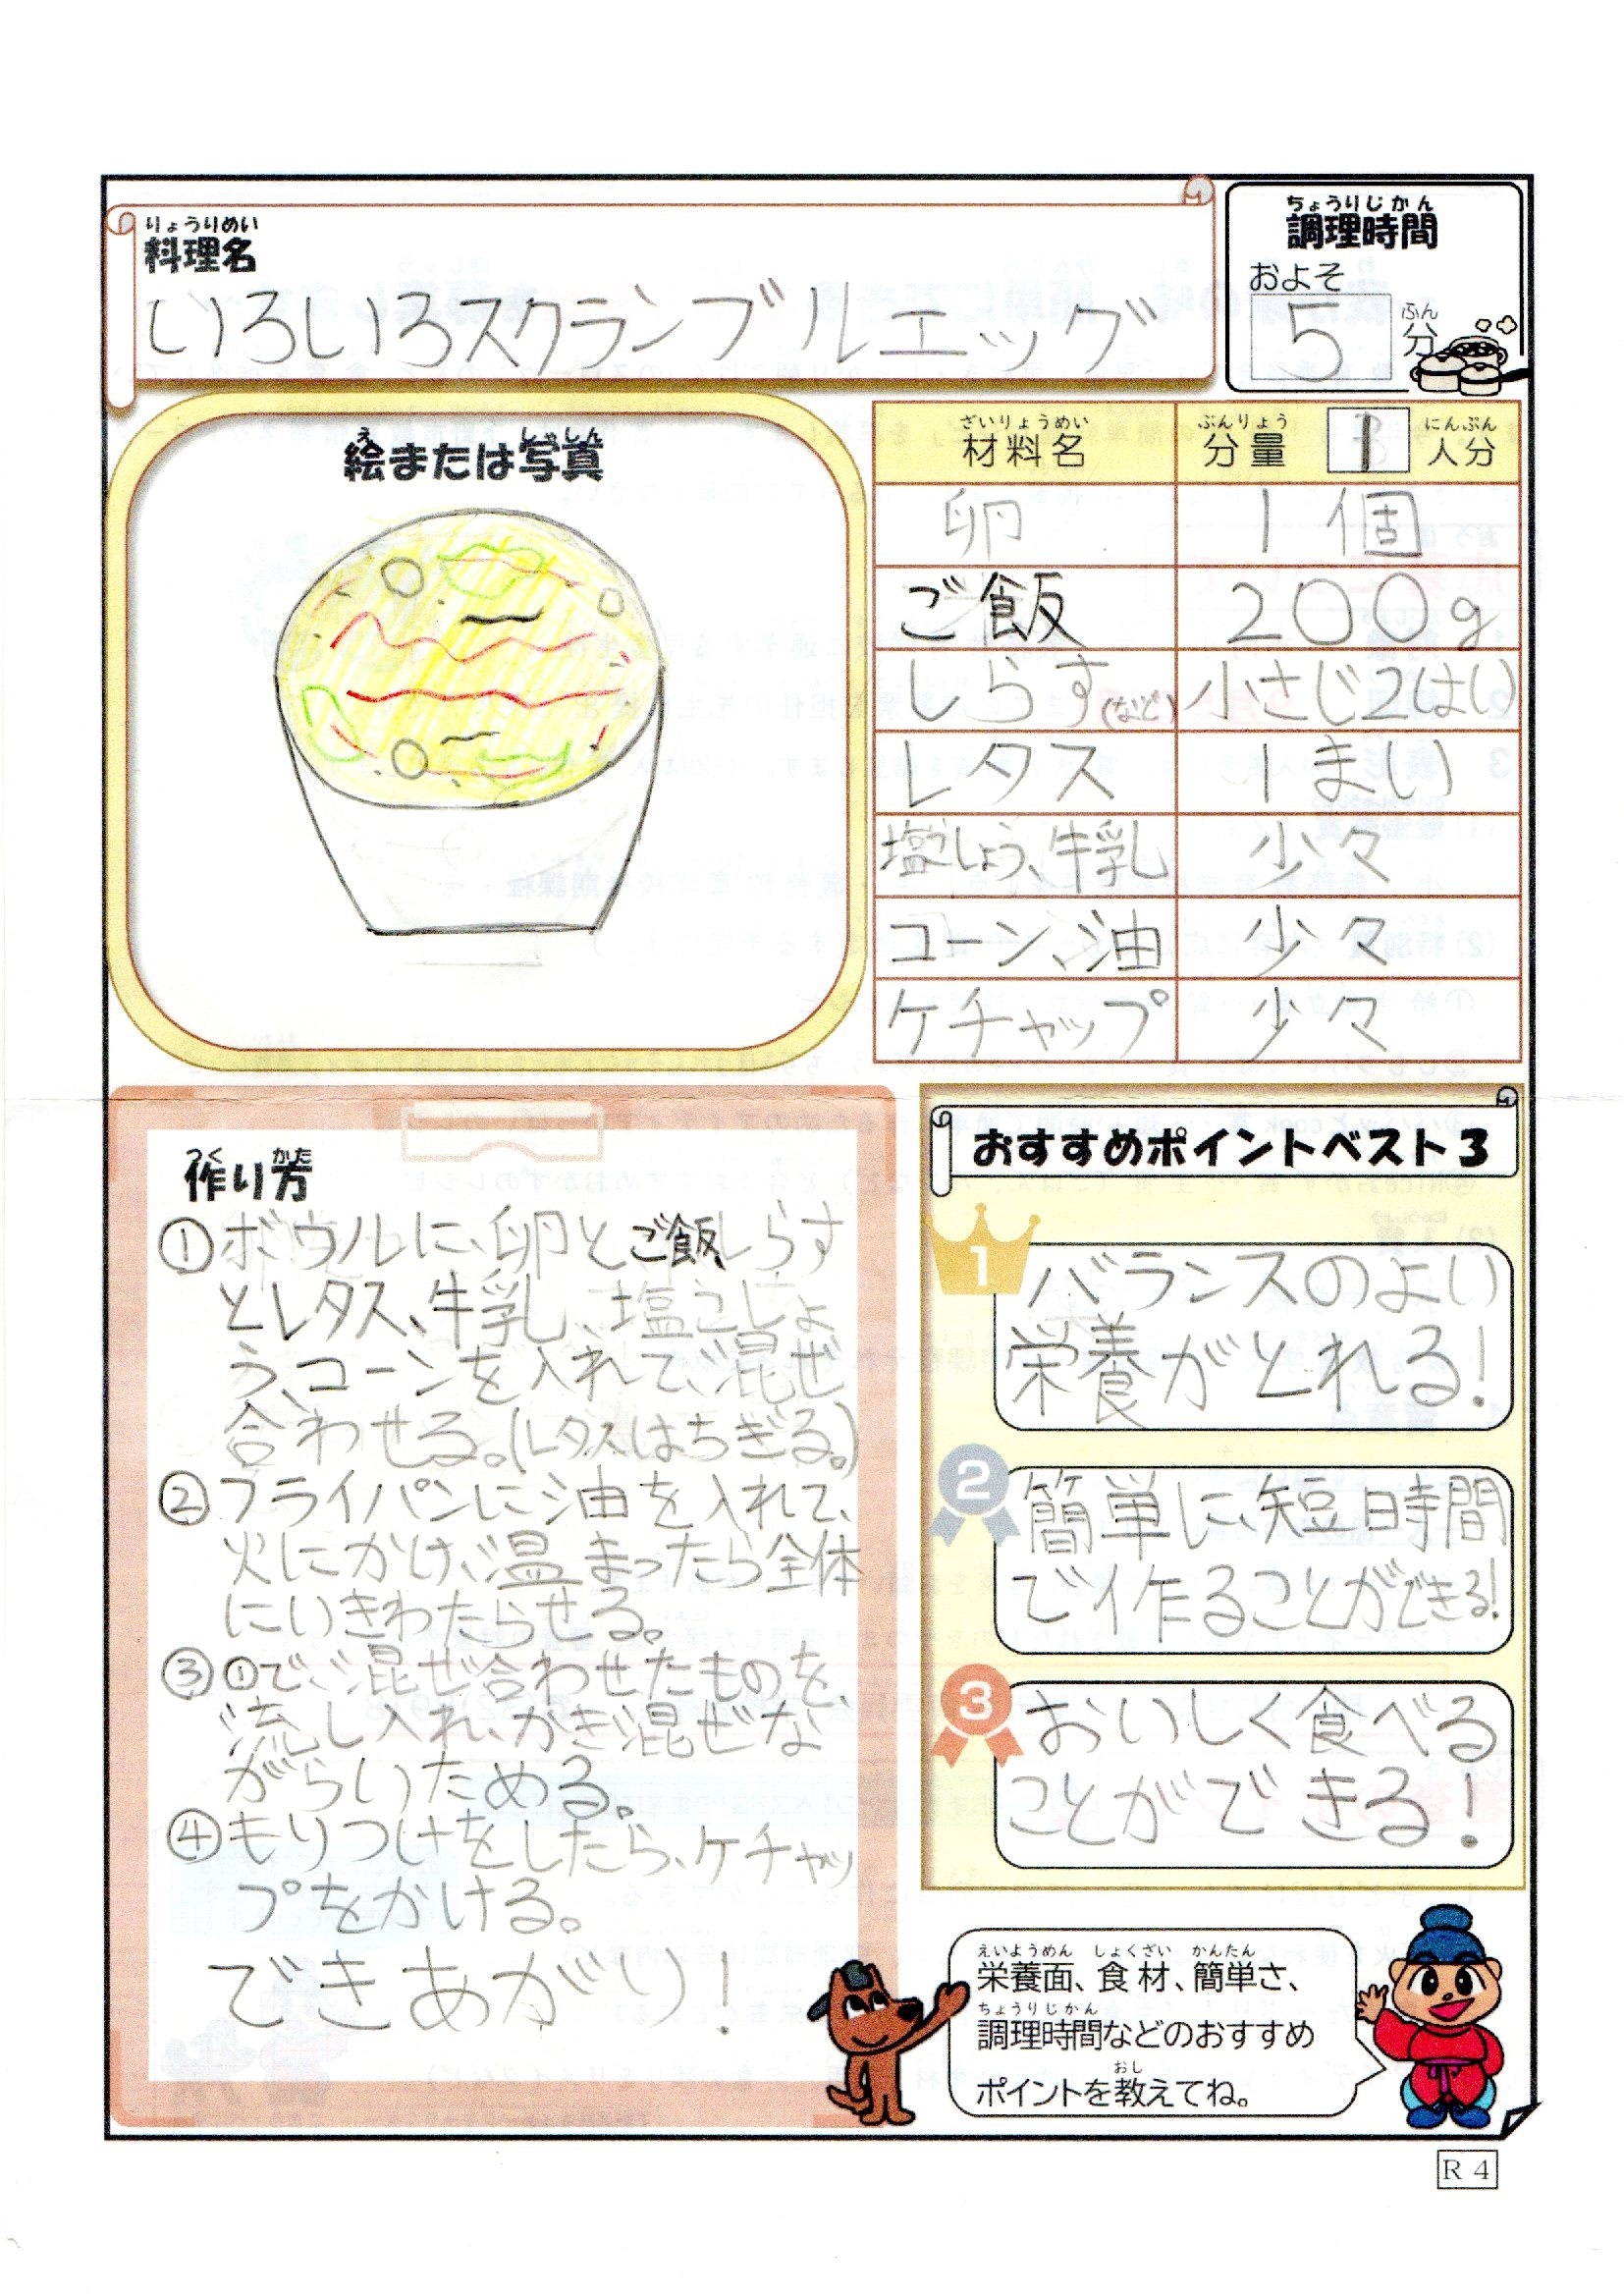 りょうりめい
料理名
いろいろスクランブルエッグ
ちょうりじかん
調理時間
およそ
5 分
ふん
え しゃしん
絵または写真
ざいりょうめい ぶんりょう にんぶん
材料名 分量 1 人分
卵 1個
ご飯 200g
しらす(など) 小さじ2はい
レタス 1まい
塩こしょう、牛乳 少々
コーン、油 少々
ケチャップ 少々
つく かた
作り方
①ボウルに、卵とご飯、しらす
とレタス、牛乳、塩こしょ
う、コーンを入れて、混ぜ
合わせる。(レタスはちぎる。)
②フライパンに油を入れて、
火にかけ、温まったら全体
にいきわたらせる。
③①で、混ぜ合わせたものを、
流し入れ、かき混ぜな
がらいためる。
④もりつけをしたら、ケチャッ
プをかける。
できあがり!
おすすめポイントベスト3
1
バランスのよい
栄養がとれる!
2
簡単に、短時間
で作ることができる!
3
おいしく食べる
ことができる!
えいようめん しょくざい かんたん
栄養面、食材、簡単さ、
ちょうりじかん
調理時間などのおすすめ
おし
ポイントを教えてね。
R4